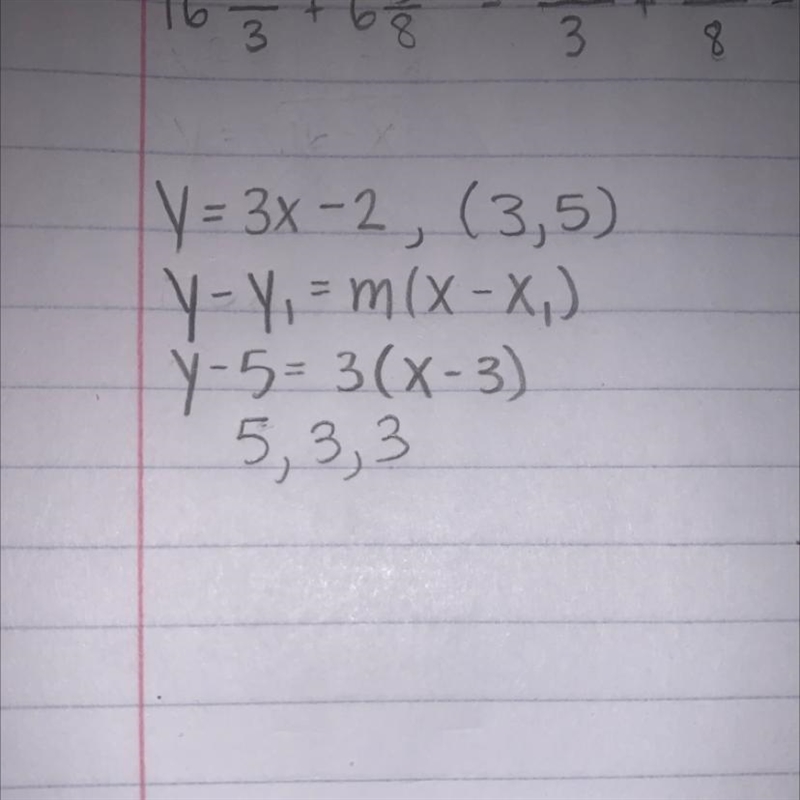 16 /3 + 6 /8 - /3 + /8
y = 3x - 2, (3,5)
y - y₁ = m(x - x₁)
y - 5 = 3(x - 3)
5, 3, 3